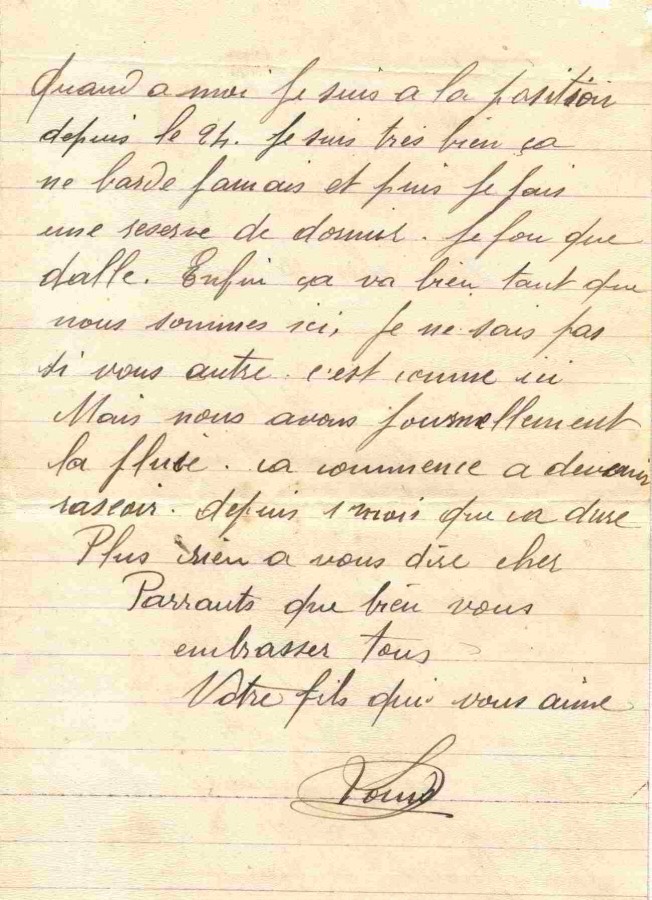 Quand a moi Je suis a la position
depuis le 24. Je suis très bien ça
ne barde Jamais et puis Je fais
une reserve de dormir. Je fou que
dalle. Enfin ça va bien tant que
nous sommes ici, Je ne sais pas
si vous autre. c'est comme ici
Mais nous avons Journellement
la pluie. ca commence a devenir
rascoir. depuis 1 mois que ca dure
Plus rien a vous dire cher
Parrants que bien vous
embrasser tous
Votre fils qui vous aime